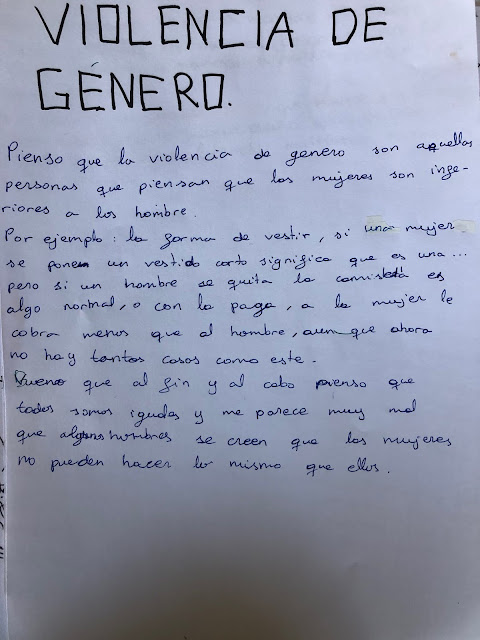 VIOLENCIA DE
GÉNERO.
Pienso que la violencia de genero son aquellas
personas que piensan que las mujeres son infe-
riores a los hombre.
Por ejemplo: la forma de vestir, si una mujer
se ponen un vestido corto significa que es una...
pero si un hombre se quita la camiseta es
algo normal, o con la paga, a la mujer le
cobra menos que al hombre, aum que ahora
no hay tantos casos como este.
Bueno que al fin y al cabo pienso que
todos somos iguales y me parece muy mal
que algunos hombres se creen que las mujeres
no pueden hacer lo mismo que ellos.